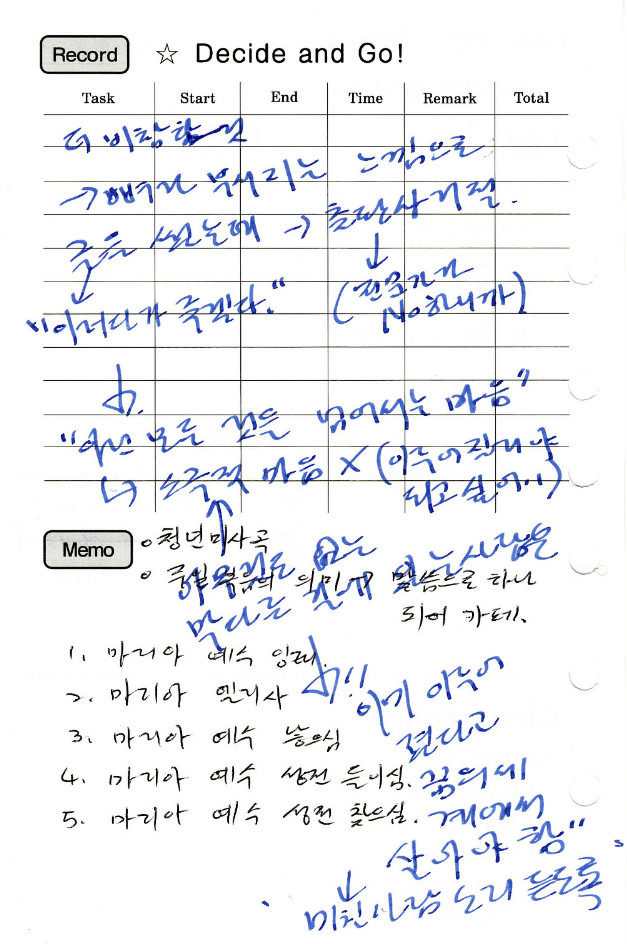 Record ☆ Decide and Go!
Task Start End Time Remark Total
더 비참할
→ 뼈가 부서지는 느낌으로
글을 썼는데 → 출판사 거절.
"이러다가 죽겠다."
(전문가가
No하니까)
모든 것을 넘어서는 마음"
↳ 소극적 마음 X (이루어질거야
되고 싶어!!)
Memo
○ 청년미사곡
의미 → 말씀으로 하나
되어 카테.
아무것도 없는
막다른 길에 있는사람은
1. 마리아 예수 잉태.
2. 마리아 엘리사 !!
3. 마리아 예수 낳으심
4. 마리아 예수 성전 들이심.
5. 마리아 예수 성전 찾으심.
이미 이루어
졌다고
꿈의세
계에서
살아야 함"
미친사람 소리 듣도록